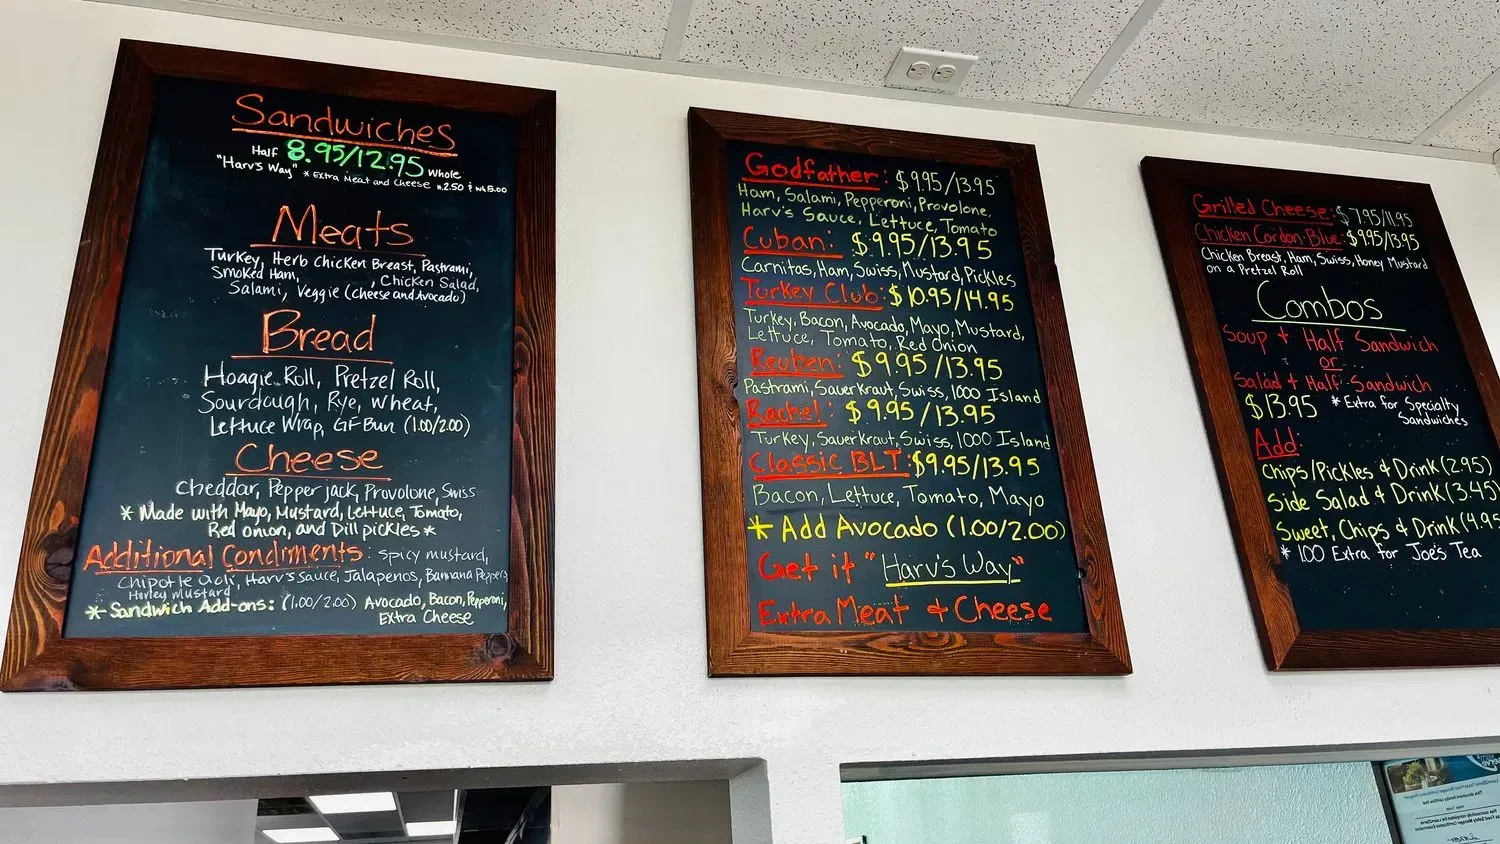 Sandwiches
Half 8.95/12.95 Whole
"Harv's Way" * Extra Meat and Cheese H.2.50 & Wh 5.00
Meats
Turkey, Herb Chicken Breast, Pastrami,
Smoked Ham, , Chicken Salad,
Salami, Veggie (cheese and Avocado)
Bread
Hoagie Roll, Pretzel Roll,
Sourdough, Rye, Wheat,
Lettuce Wrap, GF Bun (1.00/2.00)
Cheese
Cheddar, Pepper jack, Provolone, Swiss
* Made with Mayo, Mustard, Lettuce, Tomato,
Red onion, and Dill pickles *
Additional Condiments: spicy mustard,
Chipotle Aoli, Harv's sauce, Jalapenos, Bannana Peppers
Honey mustard
* Sandwich Add-ons: (1.00/2.00) Avocado, Bacon, Pepperoni,
Extra Cheese
Godfather: $9.95/13.95
Ham, Salami, Pepperoni, Provolone,
Harv's Sauce, Lettuce, Tomato
Cuban: $9.95/13.95
Carnitas, Ham, Swiss, Mustard, Pickles
Turkey Club: $10.95/14.95
Turkey, Bacon, Avocado, Mayo, Mustard,
Lettuce, Tomato, Red Onion
Reuben: $9.95/13.95
Pastrami, Sauerkraut, Swiss, 1000 Island
Rachel: $9.95/13.95
Turkey, Sauerkraut, Swiss, 1000 Island
Classic BLT: $9.95/13.95
Bacon, Lettuce, Tomato, Mayo
* Add Avocado (1.00/2.00)
Get it "Harv's Way"
Extra Meat & Cheese
Grilled Cheese: $7.95/11.95
Chicken Cordon Blue: $9.95/13.95
Chicken Breast, Ham, Swiss, Honey Mustard
on a Pretzel Roll
Combos
Soup + Half Sandwich
or
Salad + Half Sandwich
$13.95 * Extra for Specialty
Sandwiches
Add:
Chips/Pickles & Drink (2.95)
Side Salad & Drink (3.45)
Sweet, Chips & Drink (4.95
* 100 Extra for Joe's Tea